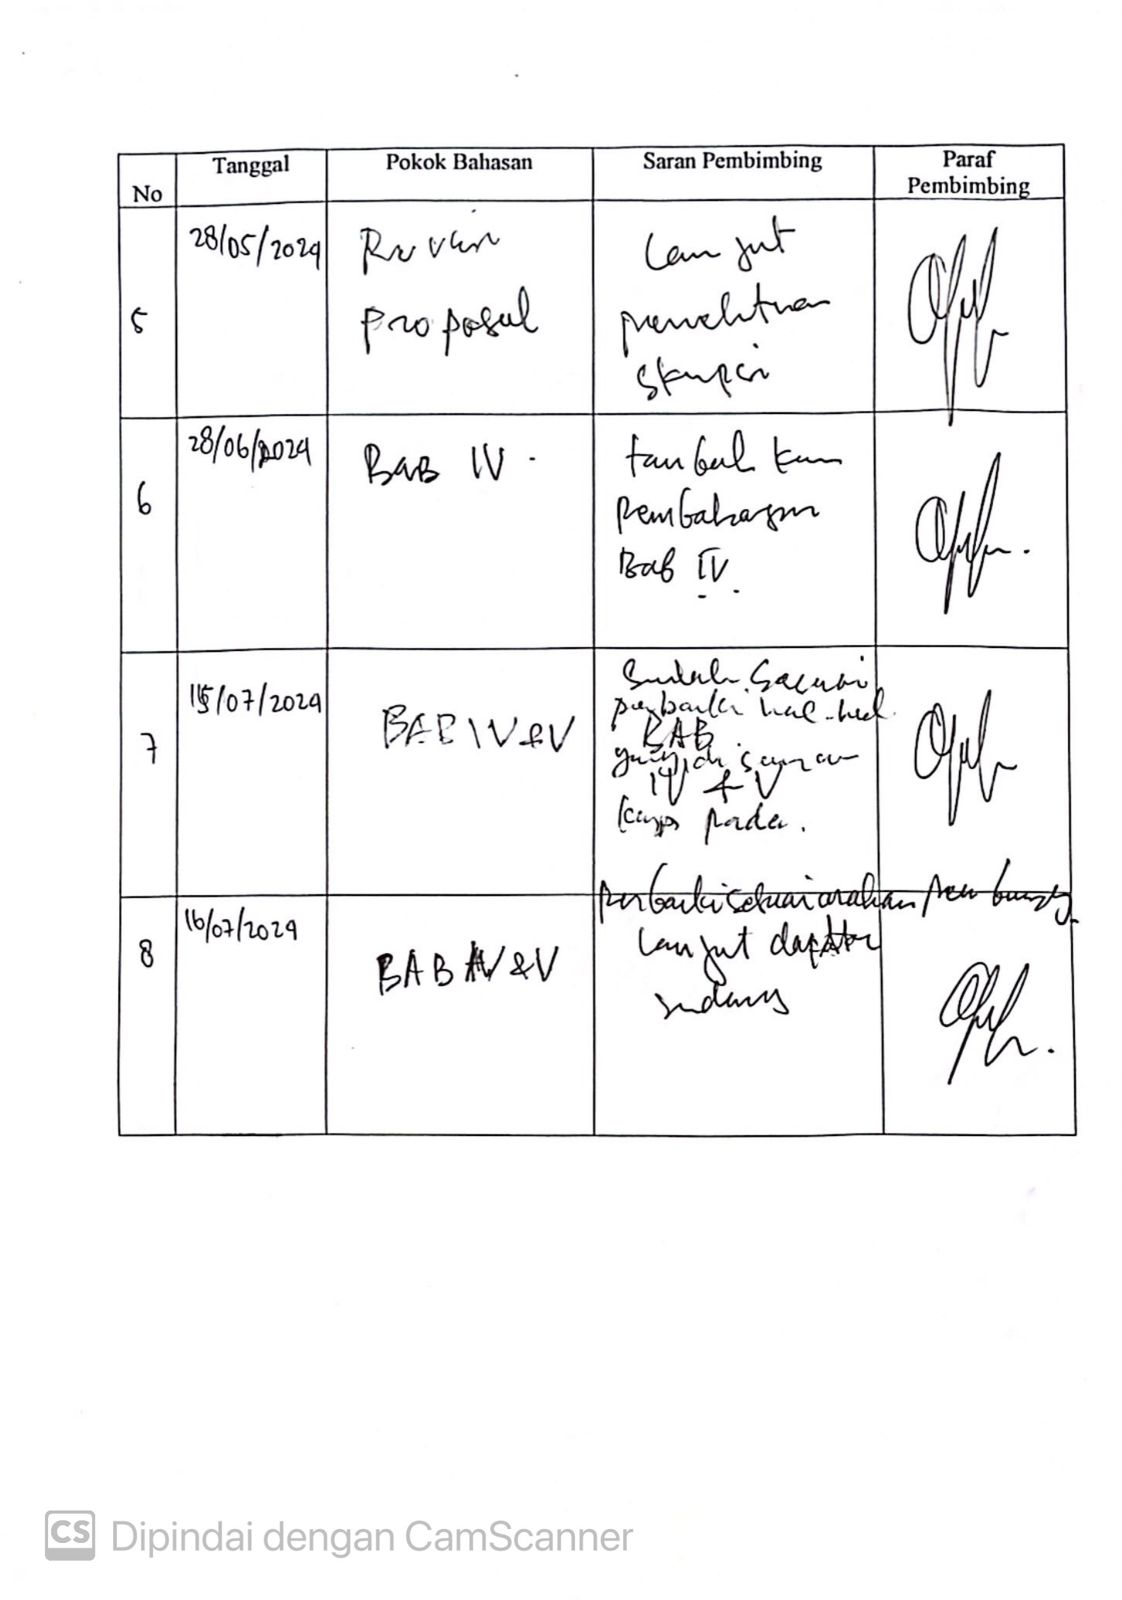 No Tanggal Pokok Bahasan Saran Pembimbing Paraf
Pembimbing
5 28/05/2024 Revisi Lanjut
Proposal penelitian
skripsi
6 28/06/2024 BAB IV. tambah kan
pembahasan
Bab IV.
7 15/07/2024 BAB IV & V Sudah Sesuai
perbaiki hal-hal
BAB
yang di sarankan
IV & V
pada.
8 16/07/2024 BAB IV & V perbaiki sesuai arahan pembimbing
lanjut daftar
sidang
CS Dipindai dengan CamScanner